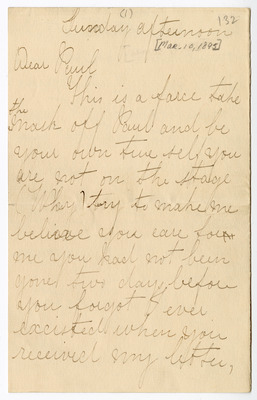 (1)
132
Sunday afternoon
[Mar. 10, 1892]
Dear Paul
This is a farce take
the
mask off Paul and be
your own true self you
are not on the stage
Why try to make me
believe you care for
me you had not been
gone two days before
you forgot I ever
excisted when you
received my letter,